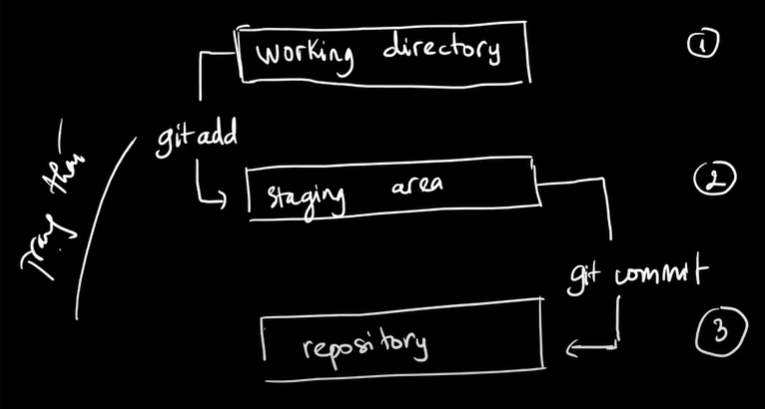 working directory
1
git add
staging area
2
git commit
repository
3